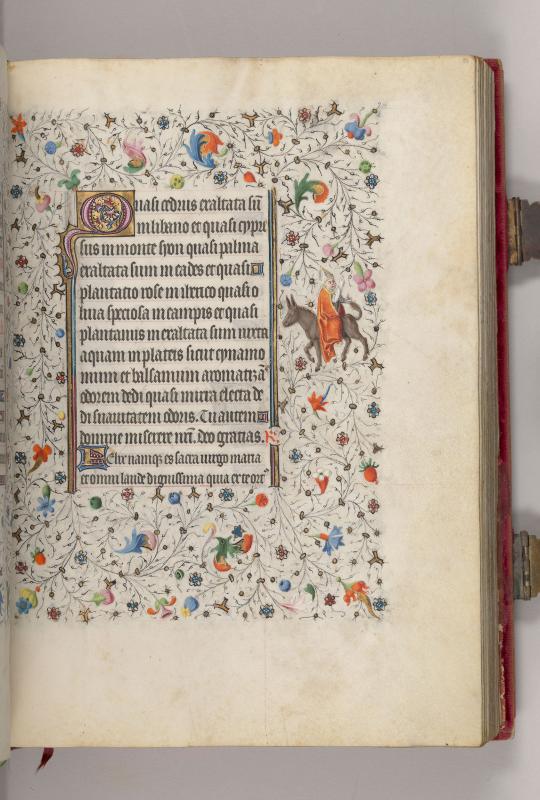 Quasi cedrus exaltata sū
in libano et quasi cypre
sus in monte syon quasi palma
exaltata sum in cades et quasi
plantacio rose in iherico quasi o
liua speciosa in campis et quasi
plantanus in exaltata sum iuxta
aquam in plateis sicut cynamo
mum et balsamum aromatizā
odorem dedi quasi mirra electa de
di suauitatem odoris. Tu autem
domine miserere nr̄i. deo gratias. R̄.
Felix namq; es sacra uirgo maria
et omni laude dignissima quia ex te ort